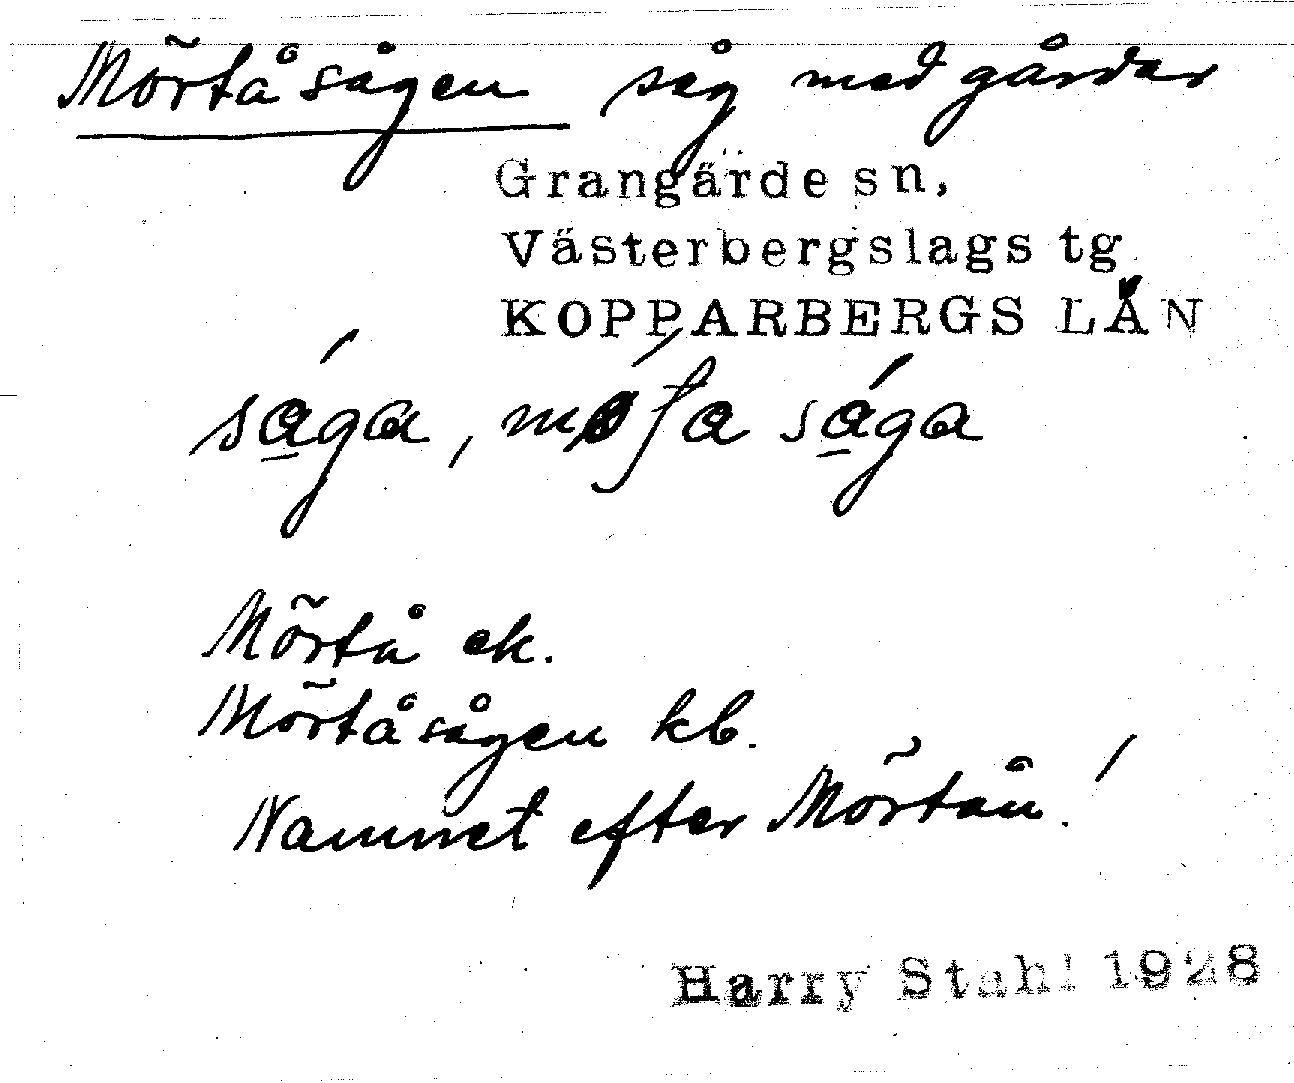 Mörtåsågen såg med gårdar
Grangärde sn,
Västerbergslags tg
KOPPARBERGS LÄN
såga, møʃa såga
Mörtå ek.
Mörtåsågen kb.
Namnet efter Mörtån!
Harry Stahl 1928